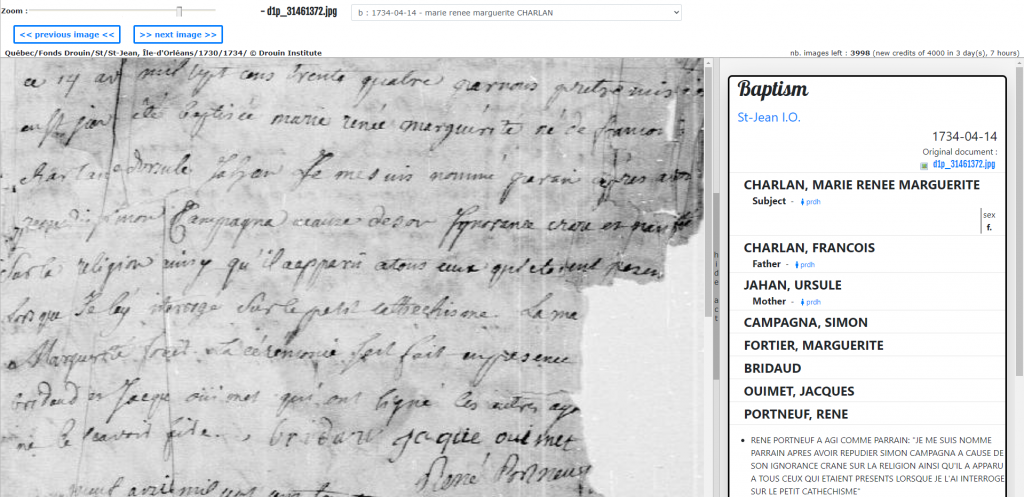 Zoom :
– d1p_31461372.jpg
b : 1734-04-14 - marie renee marguerite CHARLAN
<< previous image <<
>> next image >>
Québec/Fonds Drouin/St/St-Jean, Île-d'Orléans/1730/1734/ © Drouin Institute
nb. images left : 3998 (new credits of 4000 in 3 day(s), 7 hours)
ce 14 av mil sept cens trente quatre par nous pretre
été baptisée marie renée marguerite né de francois
charlan et dursule Jahan Je me suis nommé parain apres avoir
repudier simon Campagna a cause de son Ignorance crane
sur la religion ainsy qu'il a apparu a tous ceux qui etoient presen
Lorsque Je l'ay interrogé sur le petit cathechisme La ma
Marguerite La céremonie fait en presence
bridaud et Jacque oüimet qui ont signé les autres aya
ne le scavoir bridaud jaque ouimet
René Portneuf
avril mil
hide act
Baptism
St-Jean I.O.
1734-04-14
Original document :
d1p_31461372.jpg
CHARLAN, MARIE RENEE MARGUERITE
Subject - prdh
sex
f.
CHARLAN, FRANCOIS
Father - prdh
JAHAN, URSULE
Mother - prdh
CAMPAGNA, SIMON
FORTIER, MARGUERITE
BRIDAUD
OUIMET, JACQUES
PORTNEUF, RENE
• RENE PORTNEUF A AGI COMME PARRAIN: "JE ME SUIS NOMME
PARRAIN APRES AVOIR REPUDIER SIMON CAMPAGNA A CAUSE DE
SON IGNORANCE CRANE SUR LA RELIGION AINSI QU'IL A APPARU
A TOUS CEUX QUI ETAIENT PRESENTS LORSQUE JE L'AI INTERROGE
SUR LE PETIT CATHECHISME"